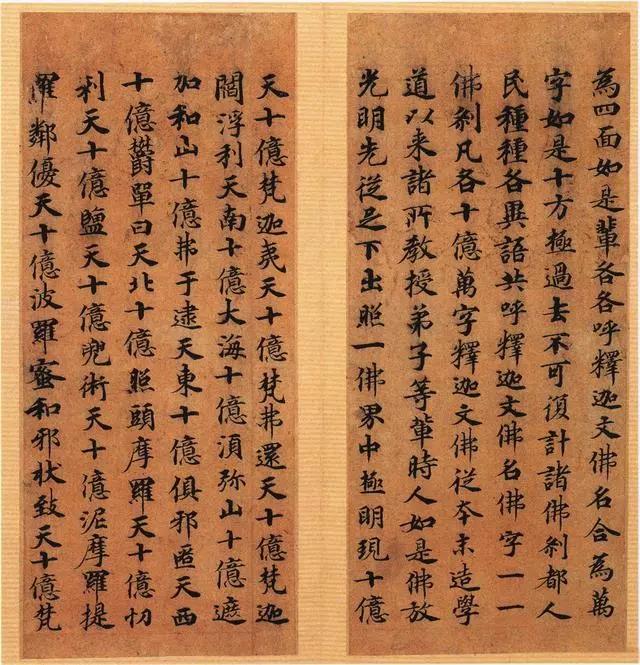 為四面如是輩各各呼釋迦文佛名合為萬
字如是十方極過去不可復計諸佛刹都人
民種種各異語共呼釋迦文佛名佛字一一
佛刹凡各十億萬字釋迦文佛從本未造學
道以来諸所教授弟子等輩時人如是佛放
光明先從足下出照一佛界中極明現十億
天十億梵迦夷天十億梵弗還天十億梵迦
閻浮利天南十億大海十億須弥山十億遮
加和山十億弗于逮天東十億俱邪匿天西
十億欝單曰天北十億照頭摩羅天十億忉
利天十億鹽天十億兜術天十億泥摩羅提
羅鄰優天十億波羅蜜和邪拔致天十億梵